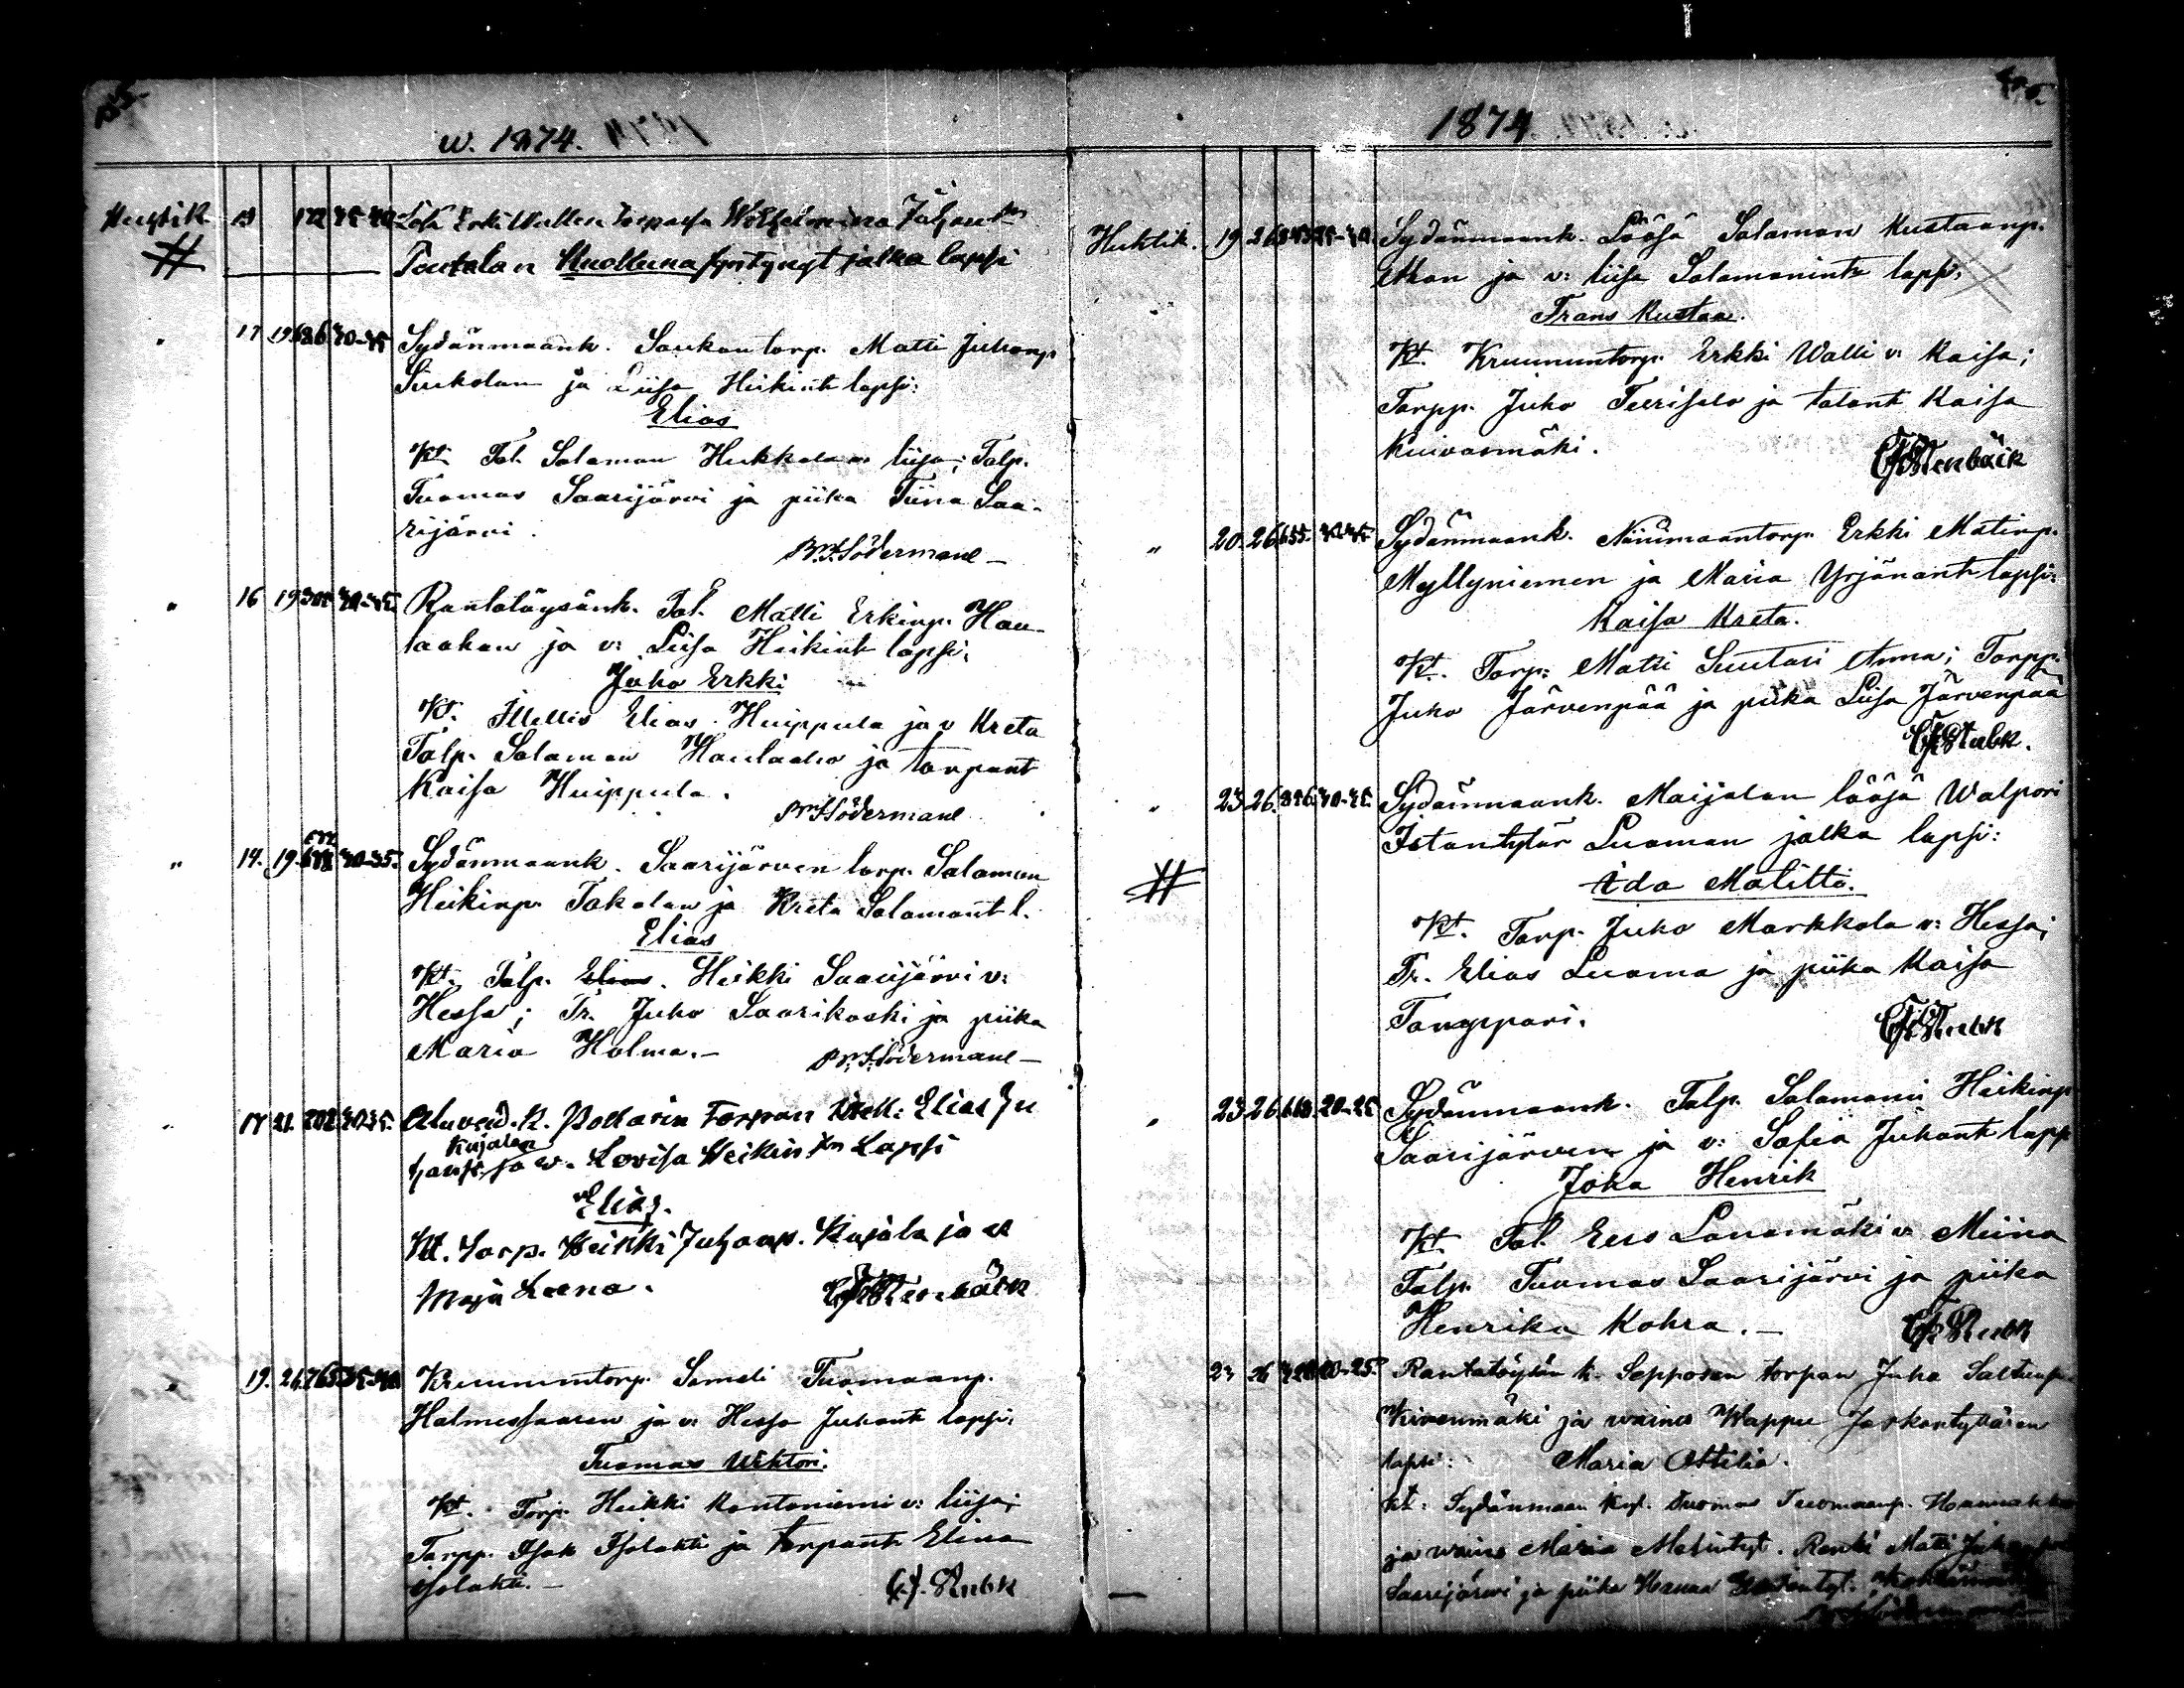 w. 1874.
Huhtik 13 172 35-40 Wilhelmina Juhont
Tautalan Kuolluna syntynyt jalka lapsi
" 17 19 686 40-45 Sydänmaank. Saukontorp. Matti Juhonp.
Siukolan ja Liisa Heikint lapsi:
Elias
Kt. Tal. Salaman Hukkala v: liisa; Talp.
Tuomas Saarijärvi ja piika Tiina Saa-
rijärvi.
Södermanl
" 16 19 40-45 Rantatöysänk. Tal. Matti Erkinp. Hau-
laahan ja v: Liisa Heikint lapsi:
Juho Erkki
Kt. Itsellis Elias Huippula ja v Kreta
Talp. Salaman Haulaaho ja torpant
Kaisa Huippula.
Södermanl
" 14. 19. 30-35. Sydänmaank. Saarijärven torp. Salaman
Heikinp. Takalan ja Kreta Salamant l.
Elias
Kt. Talp. Elias. Heikki Saarijärvi v:
Hessa; Tr. Juho Saarikoski ja piika
Maria Holma.-
Södermanl
" 17 21. 202 30-35. Alavud. K. Pollarin Torpan Elias Ju
Kujalan
hanp. ja w. Lovisa Heikin tn Lapsi
Elias.
Kt. Torp. Heikki Juhonp. Kujala ja w
Maja Leena.
Stenbäck
" 19. 26. 765 35-40 Kruununtorp. Sameli Tuomaanp.
Halmessaaren ja v: Hessa Juhont lapsi:
Tuomas Wihtori.
Kt. Torp. Heikki Kontoniemi v: liisa;
Torpp. Isak Isolahti ja torpant Elina
Isolahti.-
C.F. Stnbk
1874
Huhtik. 19 26 35-40. Sydänmaank. Löösä Salaman Kustaanp.
Ahon ja v: liisa Salamanint lapsi:
Frans Kustaa.
Kt. Kruununtorp. Erkki Walli v: Kaisa;
Torpp. Juho Teerisalo ja talont Kaisa
Kuivasmäki.
CFStenbäck
" 20. 26. 655. 40-45. Sydänmaank. Niinimaantorp. Erkki Matinp.
Myllyniemen ja Maria Yrjänänt lapsi:
Kaisa Kreta.
Kt. Torp. Matti Suutari Anna; Torpp.
Juho Järvenpää ja piika Liisa Järvenpää
CFStnbk.
" 23. 26. 40-45. Sydänmaank. Maijalan lööjä Walpori
Iotantytär Luoman jalka lapsi:
Ida Matilta.
Kt. Torp. Juho Markkola v: Hessa;
Tr. Elias Luoma ja piika Kaisa
Tamppari.
CFStnbk
" 23. 26. 668 20-25 Sydänmaank. Talp. Salamoni Heikinp
Saarijärven ja v: Sofia Juhont laps
Joha Henrik
Kt. Tal. Eero Lanamäki v: Miina
Talp. Tuomas Saarijärvi ja piika
Henrika Kohra.-
CFStnbk
23 26 20-25. Rantatöysän k. Sepposen torpan Juha Saltinp.
Kivenmäki ja waimo Wappu Jaskantyttären
lapsi: Maria Ottilia.
kt: Sydänmaan Tuomas Tuomaanp.
ja waimo Maria Matintyt. Renki Matti
Saarijärvi ja piika Hanna